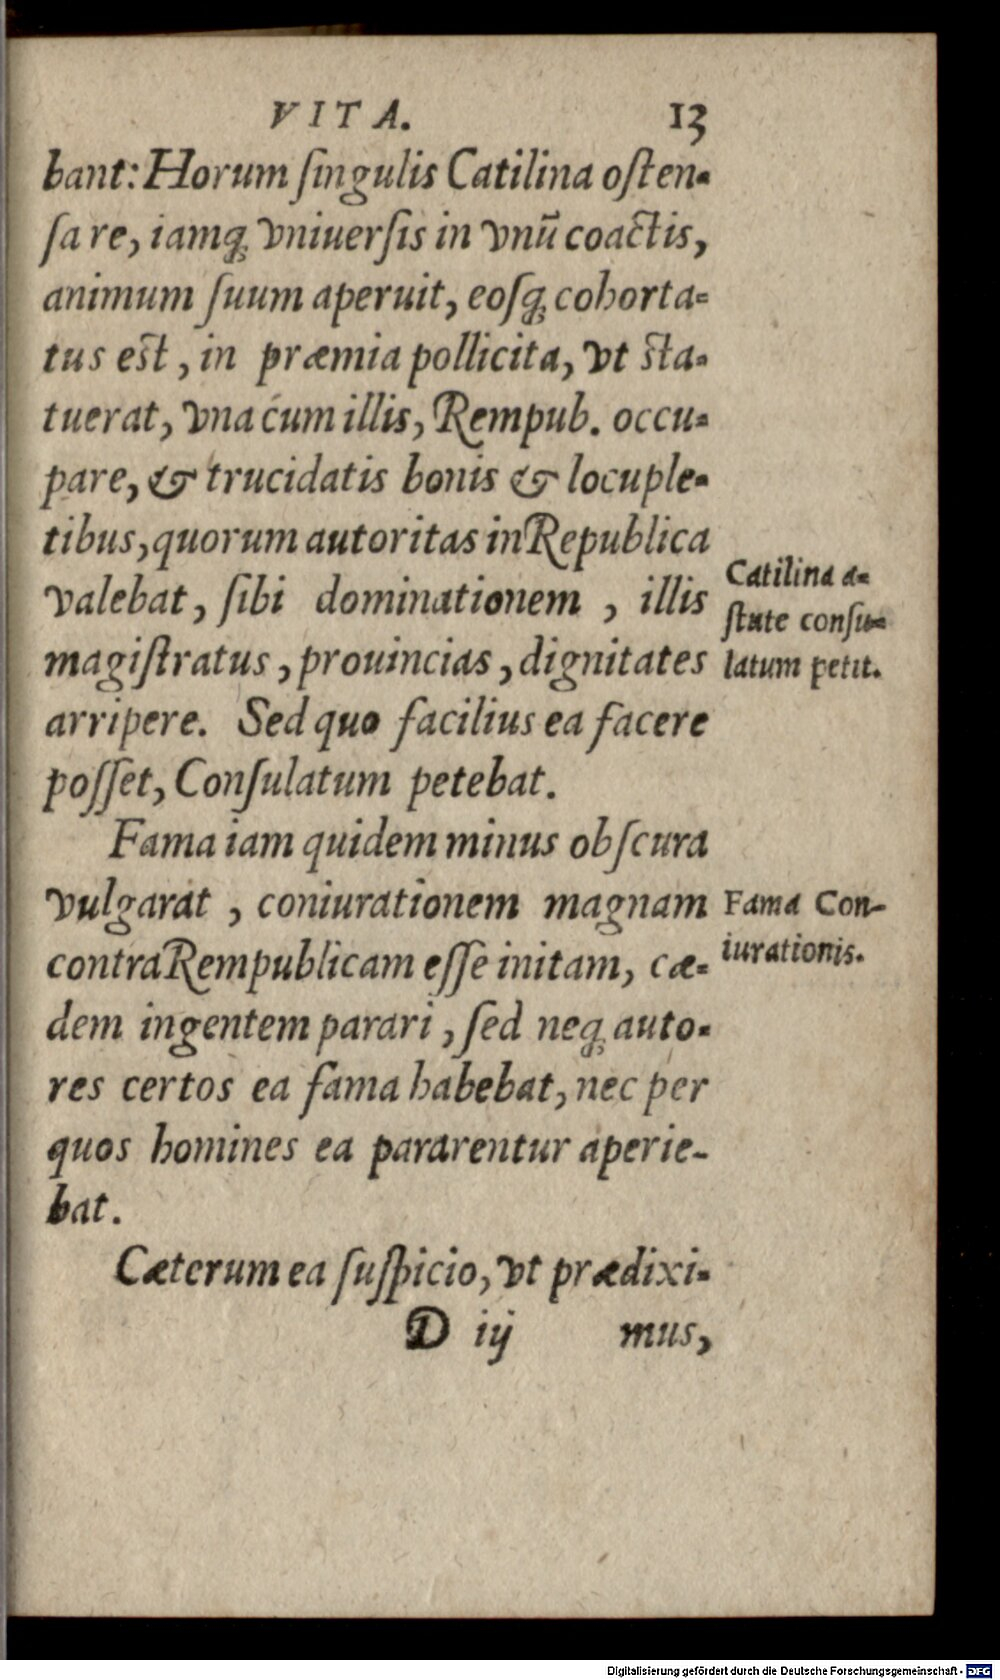 VITA. 13
bant: Horum ſingulis Catilina oſten-
ſa re, iamq́; vniuerſis in vnū coactis,
animum ſuum aperuit, eoſq́; cohorta-
tus eſt, in præmia pollicita, vt ſta-
tuerat, vna cum illis, Rempub. occu-
pare, & trucidatis bonis & locuple-
tibus, quorum autoritas in Republica
valebat, ſibi dominationem, illis
magiſtratus, prouincias, dignitates
arripere. Sed quo facilius ea facere
poſſet, Conſulatum petebat.
Catilina a-
ſtute conſu-
latum petit.
Fama iam quidem minus obſcura
vulgarat, coniurationem magnam
contra Rempublicam eſſe initam, cæ-
dem ingentem parari, ſed neq; auto-
res certos ea fama habebat, nec per
quos homines ea pararentur aperie-
bat.
Fama Con-
iurationis.
Cæterum ea ſuſpicio, vt prædixi-
D iij mus,
Digitalisierung gefördert durch die Deutsche Forschungsgemeinschaft - DFG